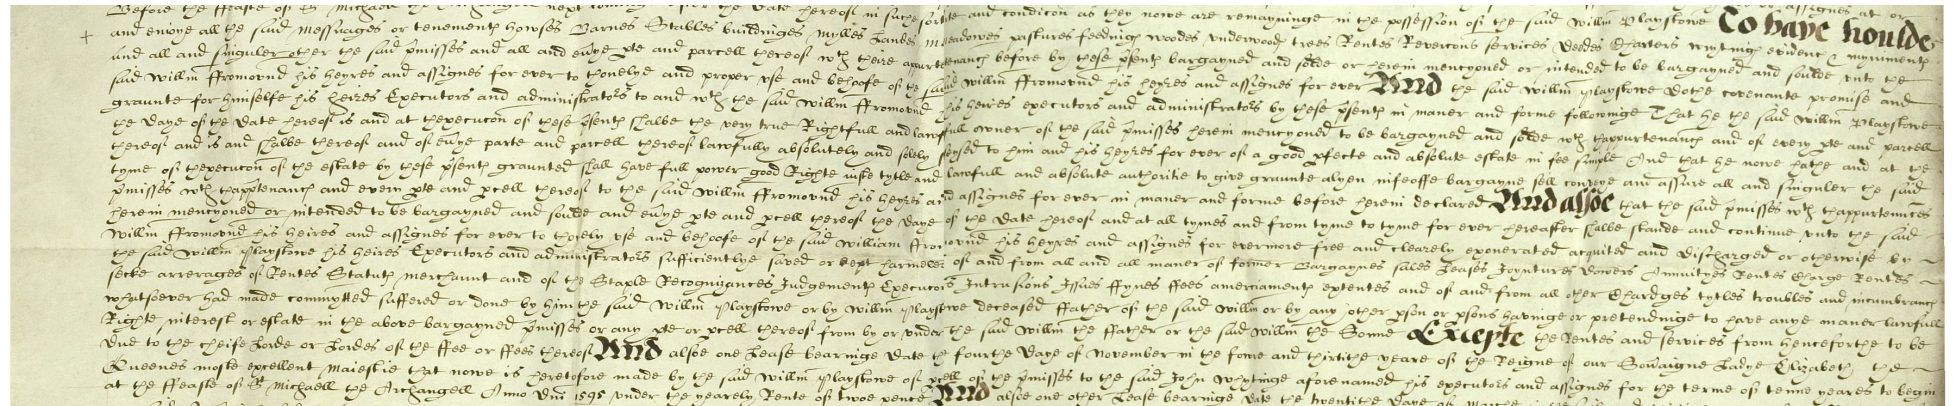 Before the ffeaste of St Michaell the Archangell next
and enioye all the said Messuages or tenementℯ howses Barnes Stables buildingeℯ Mylles Landeℯ Meadowes pastures feedingℯ woodes underwoodℯ trees Rentes Revercons services Deedes Charters wrytingℯ evidentℯ & mynimentℯ
and all and singuler other the said p̄misses and all and ev̄ye pte and parcell thereof wth there appurtenancℯ before by these p̄sentℯ bargayned and solde or herein mencyoned or intended to be bargayned and soulde unto the
said Willm̄ ffromovnd his heyres and assignes for ever to thonelye and proper use and behoofe of the said Willm̄ ffromovnd his heyres and assignes for ever And the said Willm̄ Playstowe Dothe covenante promise and
graunte for himselfe his heires Executors and administrators to and wth the said Willm̄ ffromovnd his heires executors and administrators by these p̄sentℯ in maner and forme followinge That he the said Willm̄ Playstowe
the Daye of the Date hereof is and at thexecucon of these p̄sentℯ shalbe the very true Rightfull and lawfull owner of the said p̄misses herein mencyoned to be bargayned and solde wth thappurtenancℯ and of every pte and parcell
thereof and is and shalbe thereof and of ev̄ye parte and parcell thereof lawfully absolutely and solely seysed to him and his heyres for ever of a good pfecte and absolute estate in fee simple And that he nowe hathe and at the
tyme of thexecucon of the estate by these p̄sentℯ graunted shall have full power good Righte iuste tytle and lawfull and absolute authoritie to give graunte alyen infeoffe bargayne sell conveye and assure all and singuler the said
p̄misses wth thapptenancℯ and every pte and pcell thereof to the said Willm̄ ffromovnd his heyres and assignes for ever in maner and forme before herein declared And alsoe that the said p̄misses wth thappurtennces
herein mencyoned or intended to be bargayned and soulde and ev̄ye pte and pcell thereof the Daye of the Date hereof and at all tymes and from tyme to tyme for ever hereafter shalbe stande and continue unto the said
Willm̄ ffromovnd his heires and assignes for ever to thonely use and behoofe of the said William ffromovnd his heyres and assignes for evermore free and clearely exonerated acquited and discharged or otherwise by
the said Willm̄ Playstowe his heires Executors and administrators sufficientlye saved or kept harmeles of and from all and all maner of former Bargaynes sales Leases Joyntures Dowers Annuityes Rentes Charge Rentes
secke arrerages of Rentes Statutℯ merchaunt and of the Staple Recognizances Judgementℯ Executons Intrusions Issues ffynes ffees amerciamentℯ extentes and of and from all other Chardges tytles troubles and incumbrancℯ
whatsoever had made commytted suffered or done by him the said Willm̄ Playstowe or by Willm̄ Playstowe deceased ffather of the said Willm̄ or by any other pson or psons havinge or pretendinge to have anye maner lawfull
Righte interest or estate in the above bargayned p̄misses or any pte or pcell thereof from by or under the said Willm̄ the ffather or the said Willm̄ the Sonne Excepte the Rentes and services from henceforthe to be
due to the cheife Lorde or Lordes of the ffee or ffees thereof And alsoe one Lease bearinge Date the fourthe Daye of November in the fowre and thirtithe yeare of the Reigne of our Sov̄aigne Ladye Elizabeth the
Queenes moste excellent Maiestie that nowe is heretofore made by the said Willm̄ Playstowe of pcell of the p̄misses to the said John Whytinge aforenamed his executors and assignes for the terme of tenne yeares to begin
at the ffeaste of St Michaell the Archangell Anno Dni 1595 under the yearely Rente of twoe pence And alsoe one other Lease bearinge Date the twentithe Daye of